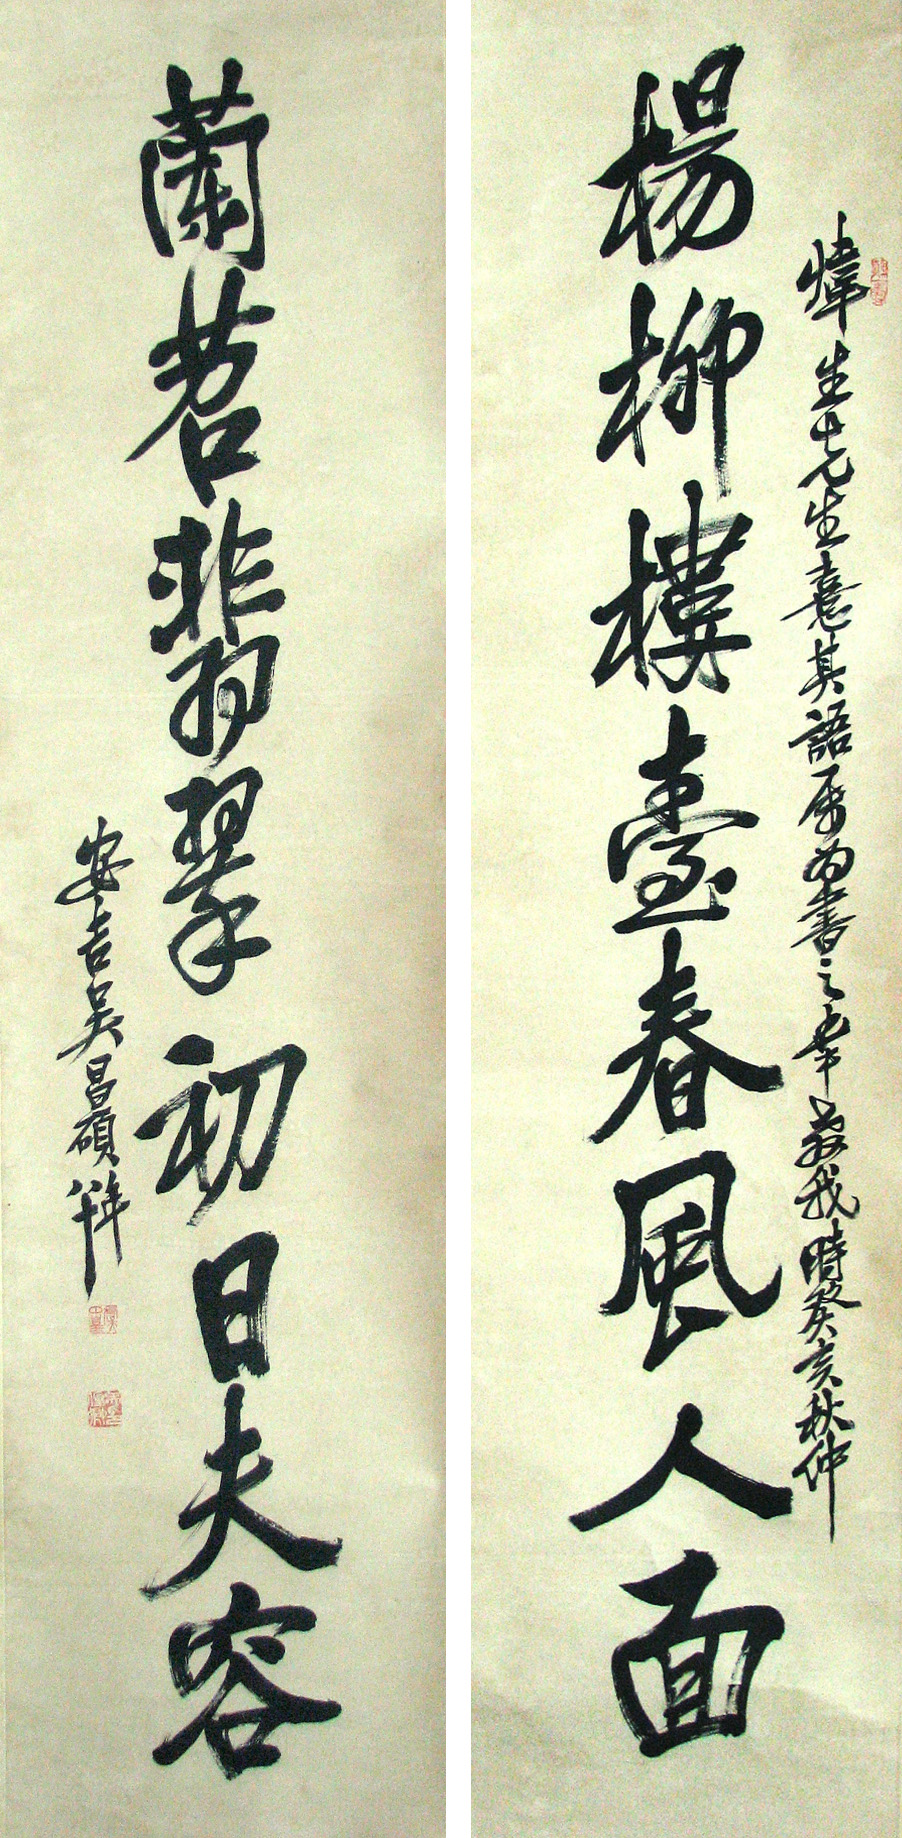 煒生先生意其語屬為書之幸教我時癸亥秋仲
楊柳樓臺春風人面
蘭苕翡翠初日夫容
安吉吳昌碩年八十